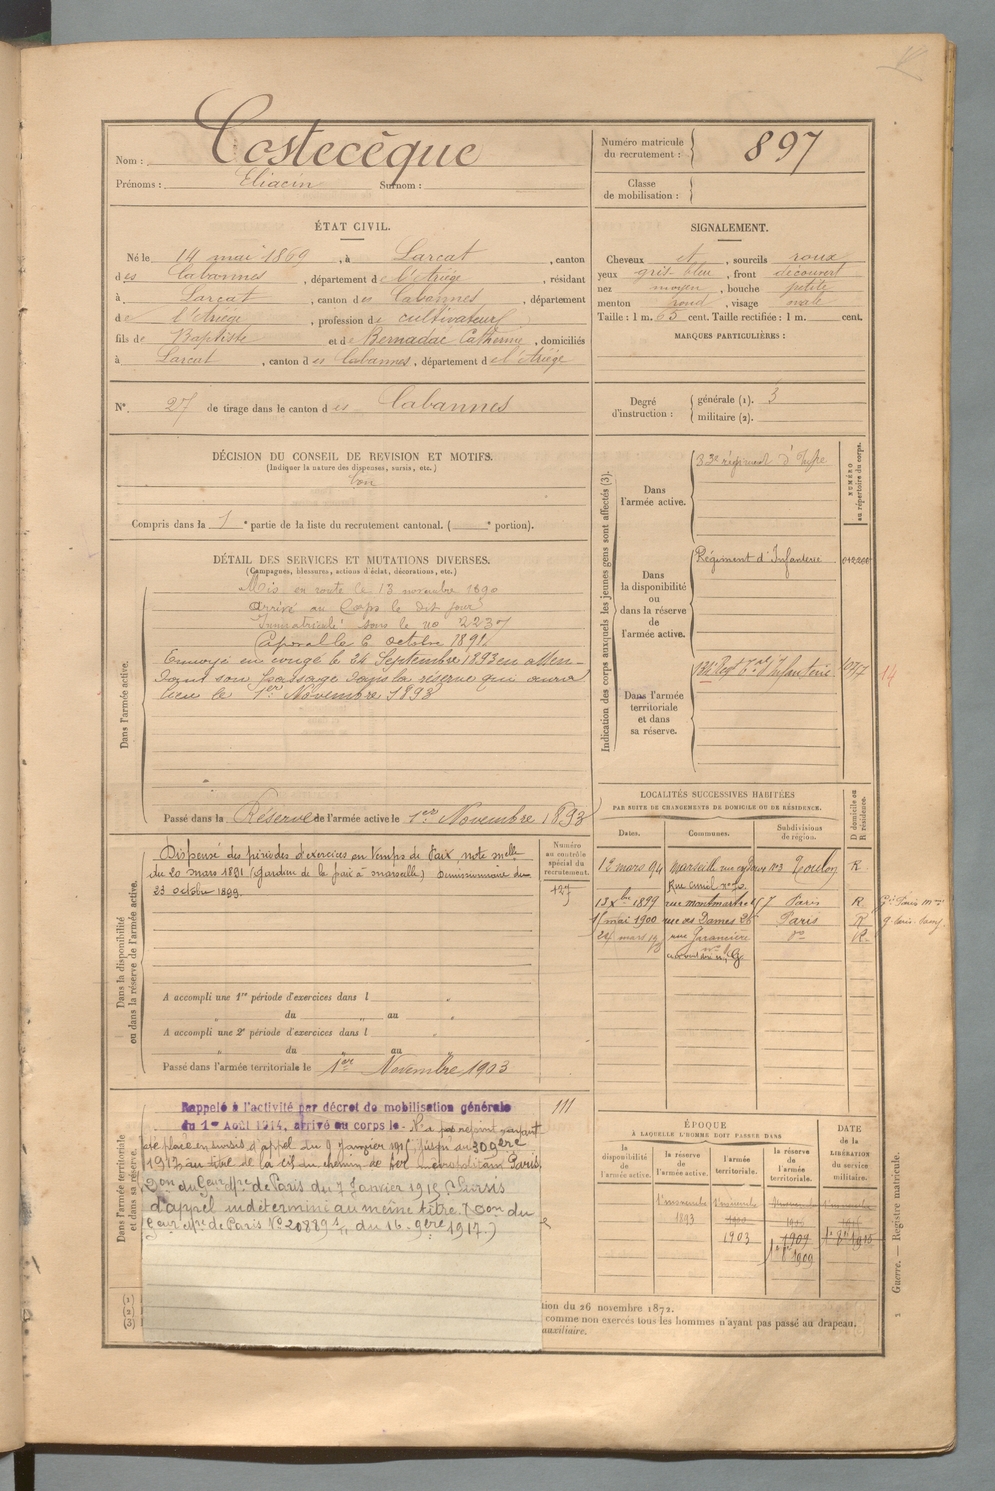 Nom : Costecèque
Prénoms : Eliacin Surnom :
Numéro matricule du recrutement : 897
Classe de mobilisation :
ÉTAT CIVIL.
Né le 14 mai 1869, à Larcat, canton
des Cabannes, département de l'Ariége, résidant
à Larcat, canton des Cabannes, département
de l'Ariége, profession de cultivateur
fils de Baptiste et de Bernadac Catherine, domiciliés
à Larcat, canton des Cabannes, département de l'Ariége
N° 27 de tirage dans le canton des Cabannes
SIGNALEMENT.
Cheveux et, sourcils roux
yeux gris bleu, front découvert
nez moyen, bouche petite
menton rond, visage ovale
Taille : 1 m. 65 cent. Taille rectifiée : 1 m. cent.
MARQUES PARTICULIÈRES :
Degré d'instruction : générale (1). 3
militaire (2).
DÉCISION DU CONSEIL DE REVISION ET MOTIFS.
(Indiquer la nature des dispenses, sursis, etc.)
bon
Compris dans la 1e partie de la liste du recrutement cantonal. ( e portion).
DÉTAIL DES SERVICES ET MUTATIONS DIVERSES.
(Campagnes, blessures, actions d'éclat, décorations, etc.)
Dans l'armée active.
Mis en route le 13 novembre 1890
arrivé au Corps le dit jour
Immatriculé sous le no 2237
Caporal le 6 octobre 1891
Envoyé en congé le 24 Septembre 1893 en atten-
dant son passage dans la réserve qui aura
lieu le 1er Novembre 1893
Passé dans la Réserve de l'armée active le 1er Novembre 1893
Indication des corps auxquels les jeunes gens sont affectés (3).
NUMÉRO au répertoire du corps.
Dans l'armée active.
83e régiment d'Infie
Dans la disponibilité ou dans la réserve de l'armée active.
Régiment d'Infanterie
Dans l'armée territoriale et dans sa réserve.
d'Infanterie
14
LOCALITÉS SUCCESSIVES HABITÉES
PAR SUITE DE CHANGEMENTS DE DOMICILE OU DE RÉSIDENCE.
Dates. Communes. Subdivisions de région. D domicile ou R résidence.
mars 94 Marseille Toulon R
Rue
13 Xbre 1899 rue montmartre Paris R
15 mai 1900 rue des Dames 26 Paris R
24 mars rue Garancière do R
Dans la disponibilité ou dans la réserve de l'armée active.
Numéro au contrôle spécial du recrutement.
127
Dispensé des périodes d'exercices en temps de Paix, note melle
du 20 mars 1891 (gardien de la paix à marseille) Démissionnaire du
23 octobre 1899.
A accompli une 1re période d'exercices dans l
du au
A accompli une 2e période d'exercices dans l
du au
Passé dans l'armée territoriale le 1er Novembre 1903
Dans l'armée territoriale et dans sa réserve.
111
Rappelé à l'activité par décret de mobilisation générale
du 1er Août 1914, arrivé au corps le - N'a pas rejoint ayant
été placé en sursis d'appel du 9 Janvier 1915 jusqu'au 30 9bre
1917 au titre de la Cie du chemin de fer métropolitain Paris,
Don du Gour Mre de Paris du 7 Janvier 1915 (Sursis
d'appel indéterminé au même titre. Don du
Gour Mre de Paris No 20889 du 16 9bre 1917.)
ÉPOQUE
À LAQUELLE L'HOMME DOIT PASSER DANS
la disponibilité de l'armée active. la réserve de l'armée active. l'armée territoriale. la réserve de l'armée territoriale.
DATE de la LIBÉRATION du service militaire.
1er novembre 1893
1903
1909
1909
(1)
(2)
(3)
tion du 26 novembre 1872.
comme non exercés tous les hommes n'ayant pas passé au drapeau.
auxiliaire.
Guerre. — Registre matricule.